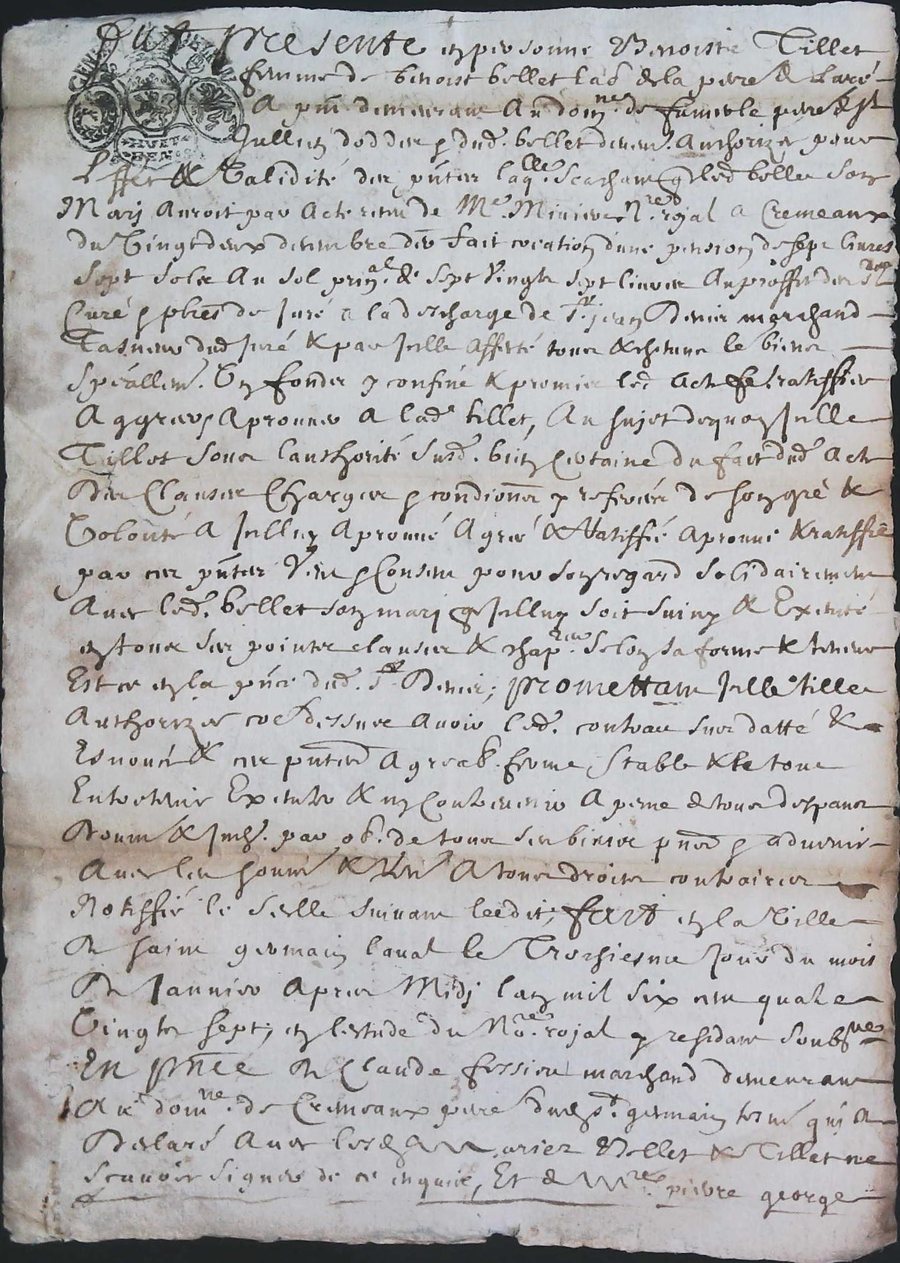 Fut presente en personne Benoiste Tillet
femme de benoist bellet lab. de la
A pnt demeurant Au dom.ne de
Jullien d'oddes dud. bellet Authorizee pour
Leffet & Validité des pntes laq.lle Scachant q led bellet Son
Mary Auroit par Acte receu de Me. Miniere N.re rojal a Cremeaux
du Vingt deux decembre der fait creation dune pension de sept livres
sept sols Au sol prin.al de sept Vingts sept livres Au proffit des Srs
Curé & pbres de Juré a la descharge de Sr. jean Denis marchand
dud Juré & par Icelle Affecté tous & chacuns les biens
Spéallem. En fondz y confiné & promis led Acte fe ratiffier
Aggreer Aprouver A lad. tillet, Au sujet de quoy Icelle
Tillet Soubz lauthorité Susd. bien Certaine du fait dud. Acte
Des Clauses Charges & conditions y referées de son gré &
Volonté A Icelluy Aprouvé Agreé & Ratiffié Aprouve & ratiffie
par ces pntes Veut & Consent pour son regard Solidairement
Avec led. bellet son mary q Icelluy soit Suivy & Executé
en tous ses points clauses & chap. Selon sa forme & teneur
Est ce en la pnce dud. Sr. Denis; promettant Icelle tillet
Authorizee co.e dessus Avoir led. contrat sus datté &
Esnoncé & ces pntes Agreab. ferme, Stable & le tout
Entretenir Executer & ny Contrevenir A peine de tous despans
domm & Inth. par ob. de tous ses biens pnts & advenir
Avec les soumis & Ren A tous droits contraires
Notiffié le Seelle suivant leedit; fait en la Ville
De saint germain laval le Troisiesme jour du mois
De Janvier Apres Midj lan mil six cent quatre
Vingts sept; en lestude du No.re rojal & residant soubsne
En pnce de Claude marchand demeurant
Au dom.ne de Cremeaux par.e dud St. germain tesm qui a
Declaré Avec lesd mariez Bellet & Tillet ne
Scavoir Signer de ce enquis, Et de M.re pierre george